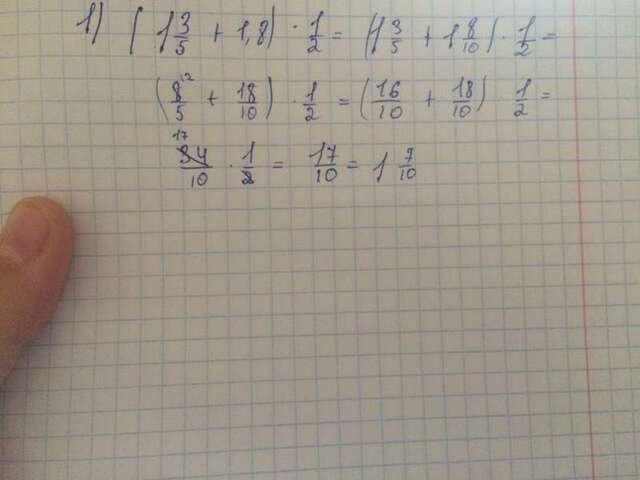 1) (1 3/5 + 1,8) · 1/2 = (1 3/5 + 1 8/10) · 1/2 =
(8/5 ^12 + 18/10) · 1/2 = (16/10 + 18/10) 1/2 =
17
34/10 · 1/2 = 17/10 = 1 7/10